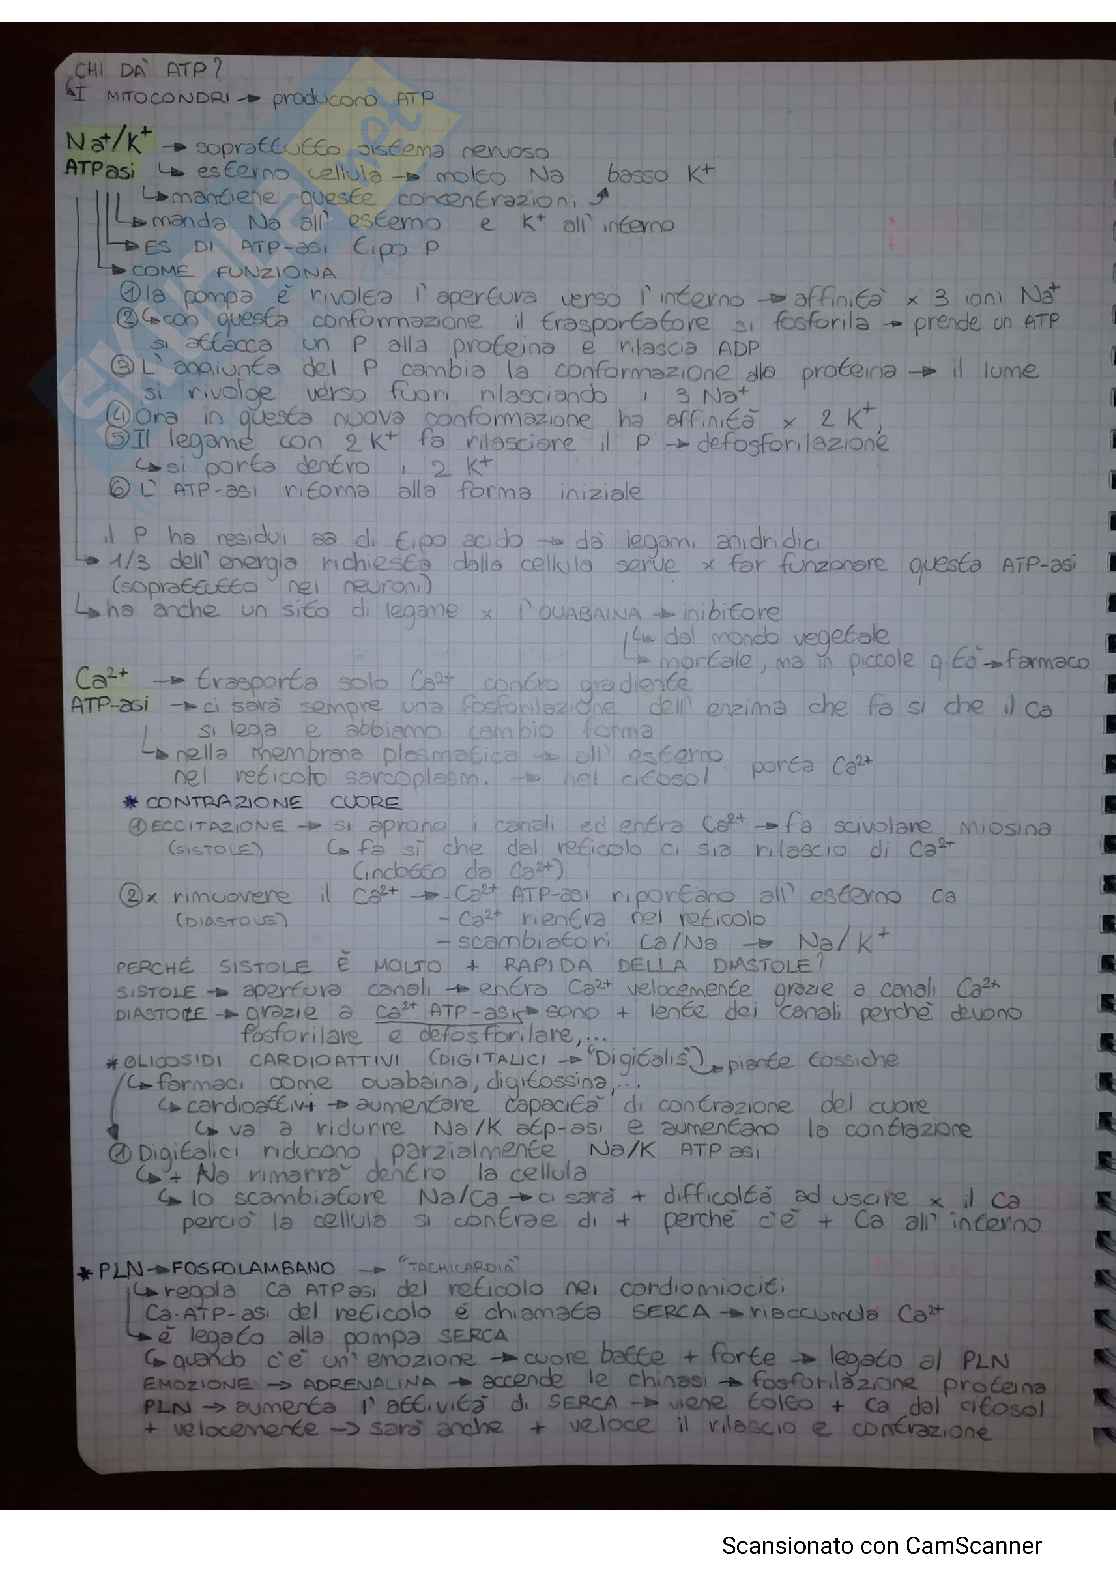 CHI DÀ ATP?
↳ I MITOCONDRI → producono ATP
Na+/K+ → soprattutto sistema nervoso
ATPasi ↳ esterno cellula → molto Na basso K+
↳ mantiene queste concentrazioni
↳ manda Na all'esterno e K+ all'interno
↳ ES DI ATP-asi tipo P
↳ COME FUNZIONA
① la pompa è rivolta l'apertura verso l'interno → affinità x 3 ioni Na+
② ↳ con questa conformazione il trasportatore si fosforila → prende un ATP
si attacca un P alla proteina e rilascia ADP
③ L'aggiunta del P cambia la conformazione alla proteina → il lume
si rivolge verso fuori rilasciando i 3 Na+
④ Ora in questa nuova conformazione ha affinità x 2 K+,
⑤ Il legame con 2K+ fa rilasciare il P → defosforilazione
↳ si porta dentro i 2 K+
⑥ L'ATP-asi ritorna alla forma iniziale
il P ha residui aa di tipo acido → dà legami anidridici
↳ 1/3 dell'energia richiesta dalla cellula serve x far funzionare questa ATP-asi
(soprattutto nei neuroni)
↳ ha anche un sito di legame x l'OUABAINA → inibitore
↳ dal mondo vegetale
↳ mortale, ma in piccole q.tà → farmaco
Ca2+ → trasporta solo Ca2+ contro gradiente
ATP-asi → ci sarà sempre una fosforilazione dell'enzima che fa si che il Ca
si lega e abbiamo cambio forma
↳ nella membrana plasmatica → all'esterno
nel reticolo sarcoplasm. → nel citosol porta Ca2+
* CONTRAZIONE CUORE
① ECCITAZIONE → si aprono i canali ed entra Ca2+ → fa scivolare miosina
(SISTOLE) ↳ fa sì che dal reticolo ci sia rilascio di Ca2+
(indotto da Ca2+)
② x rimuovere il Ca2+ → - Ca2+ ATP-asi riportano all'esterno Ca
(DIASTOLE) - Ca2+ rientra nel reticolo
- scambiatori Ca/Na → Na/K+
PERCHÉ SISTOLE È MOLTO + RAPIDA DELLA DIASTOLE?
SISTOLE → apertura canali → entra Ca2+ velocemente grazie a canali Ca2+
DIASTOLE → grazie a Ca2+ ATP-asi → sono + lente dei canali perchè devono
fosforilare e defosforilare,...
* GLICOSIDI CARDIOATTIVI (DIGITALICI → "Digitalis") → piante tossiche
↳ farmaci come ouabaina, digitossina,...
↳ cardioattivi → aumentare capacità di contrazione del cuore
↳ va a ridurre Na/K atp-asi e aumentano la contrazione
① Digitalici riducono parzialmente Na/K ATPasi
↳ + Na rimarrà dentro la cellula
↳ lo scambiatore Na/Ca → ci sarà + difficoltà ad uscire x il Ca
perciò la cellula si contrae di + perchè c'è + Ca all'interno
* PLN → FOSFOLAMBANO → "TACHICARDIA"
↳ regola Ca ATPasi del reticolo nei cardiomiociti
Ca-ATP-asi del reticolo è chiamata SERCA → riacciunda Ca2+
↳ è legato alla pompa SERCA
↳ quando c'è un'emozione → cuore batte + forte → legato al PLN
EMOZIONE → ADRENALINA → accende le chinasi → fosforilazione proteina
PLN → aumenta l'attività di SERCA → viene tolto + Ca dal citosol
+ velocemente → sarà anche + veloce il rilascio e contrazione
Scansionato con CamScanner